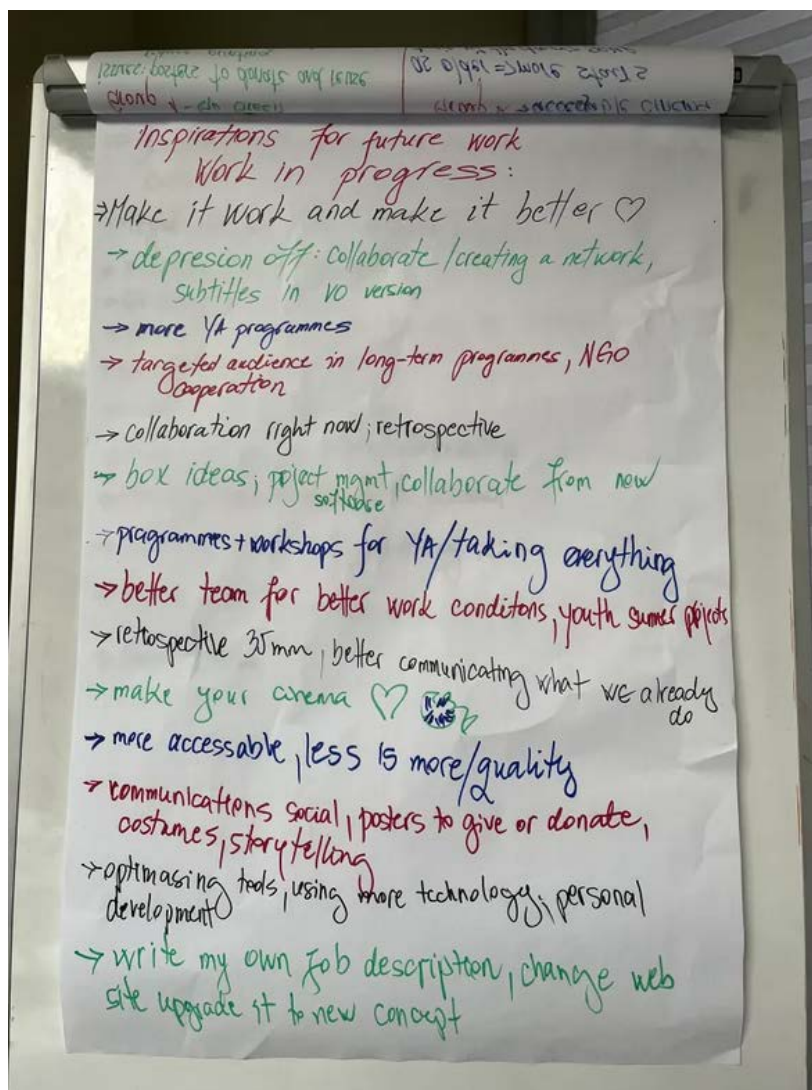 Inspirations for future work
Work in progress:
→Make it work and make it better ♡
→ depresion off: collaborate/creating a network,
subtitles in VO version
→ more YA programmes
→ targeted audience in long-term programmes, NGO
cooperation
→ collaboration right now; retrospective
→ box ideas; poject mgmt, collaborate from now
software
→ programmes+workshops for YA/taking everything
→ better team for better work conditons, youth summer projects
→ retrospective 35mm, better communicating what we already
do
→ make your cinema ♡
→ more accessable, less is more/quality
→ communications social, posters to give or donate,
costumes, storytelling
→ optimasing tools, using more technology, personal
development
→ write my own job description, change web
site upgrade it to new concept